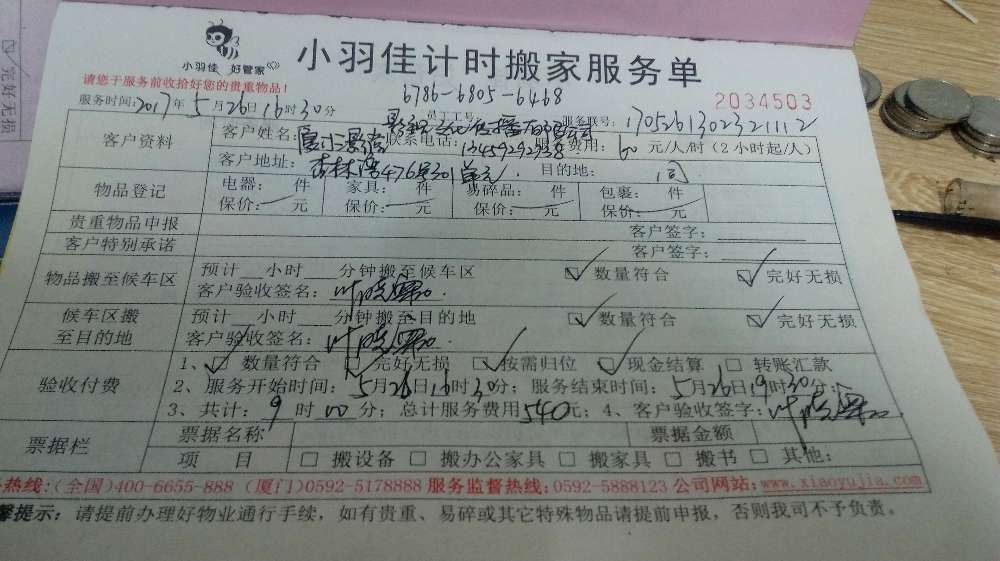 小羽佳 好管家
小羽佳计时搬家服务单
请您于服务前收拾好您的贵重物品!
6786-6805-6468
2034503
服务时间:2017年5月26日16时30分 员工工号: 服务联号: 1705261302321112
客户资料 客户姓名: 联系电话: 服务费用:60元/人/时(2小时起/人)
客户地址:杏林湾476号301单元. 目的地: 同
物品登记 电器: 件 家具: 件 易碎品: 件 包裹: 件
保价: 元 保价: 元 保价: 元 保价: 元
贵重物品申报 客户签字:
客户特别承诺 客户签字:
物品搬至候车区 预计__小时___分钟搬至候车区 ☑ 数量符合 ☑ 完好无损
客户验收签名:
候车区搬至目的地 预计__小时___分钟搬至目的地 ☑ 数量符合 ☑ 完好无损
客户验收签名:
验收付费 1、☑ 数量符合 ☑ 完好无损 ☑ 按需归位 ☑ 现金结算 □ 转账汇款
2、服务开始时间:5月26日16时30分;服务结束时间:5月26日19时30分;
3、共计:9时00分;总计服务费用540元;4、客户验收签字:
票据栏 票据名称 票据金额
项 目 □ 搬设备 □ 搬办公家具 □ 搬家具 □ 搬书 □ 其他:
热线:(全国)400-6655-888 (厦门)0592-5178888 服务监督热线:0592-5888123 公司网站:www.xiaoyujia.com
馨提示:请提前办理好物业通行手续,如有贵重、易碎或其它特殊物品请提前申报,否则我司不予负责。
完好无损